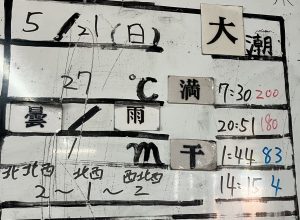 5/21(日) 大潮
27 ℃ 満 7:30 200
曇/雨 20:51 180
1 m 干 1:44 83
北北西 北西 西北西 14:15 4
2〜1〜2